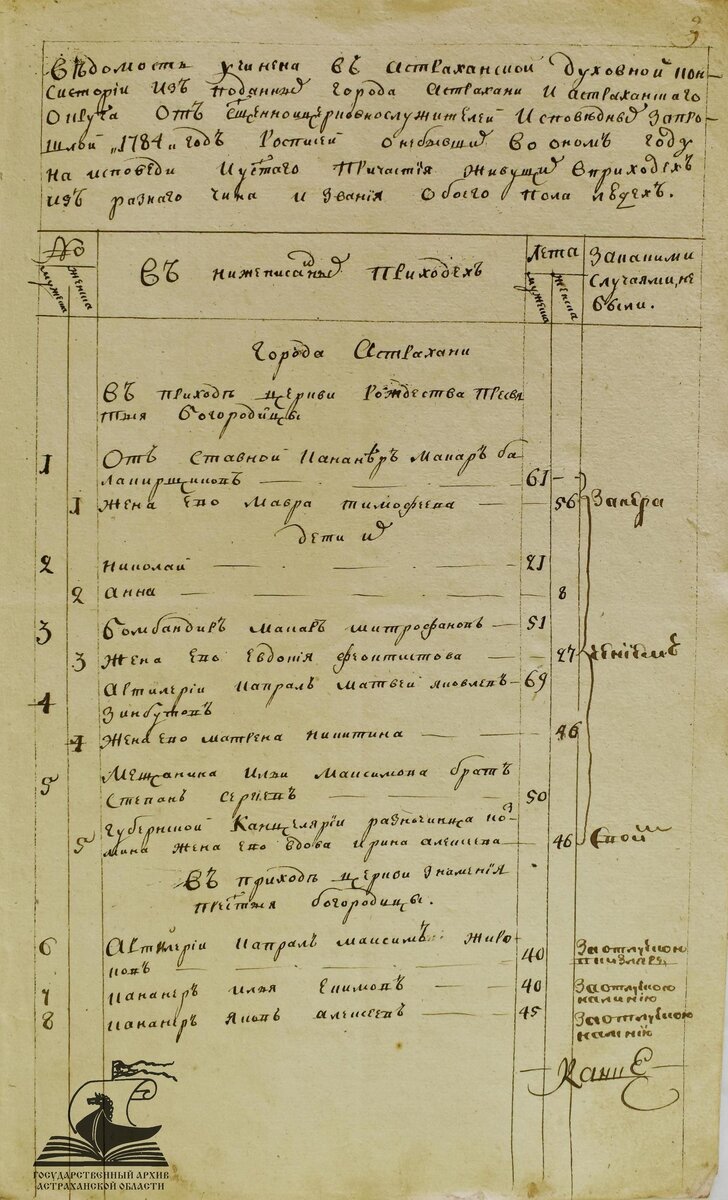 3
Вѣдомость учинена въ Астраханской Духовной Кон-
систоріи изъ поданные города Астрахани и астраханскаго
округа отъ сщенноцерковнослужителей исповѣдные запро-
шлой „1784„ годъ росписей о небывшие во ономъ году
на исповеди и устаго причастія живущие вприходехъ
изъ разнаго чина и званія обоего пола людехъ.
№
мужеска
женска
Въ нижеписанные приходехъ
лета
мужеска
женска
Заканими
случаями, не
были.
Города Астрахани
Въ приходѣ церкви Рождества Пресвя
тыя Богородицы
1 Отъ ставной Кананѣръ Макаръ ба
лакирщиковъ 61
1 Жена ево Мавра Тимофеева 56
дети их
2 Николай 21
2 Анна 8
3 Бомбандиръ Макаръ Митрофановъ 51
3 Жена ево Евдокія Феоктистова 27
4 Артилеріи капралъ Матвей Яковлевъ 69
4 Жена ево Матрена Никитина 46
5 Мещанина Ильи Максимова братъ
Степанъ Сергѣевъ 50
Губернской Канцеляріи разночинца
5 жена ево вдова Ирина Алексеева 46
Въ приходѣ церкви Знаменія
Престыя Богородицы.
6 Артилеріи капралъ Максимъ 40
За отлучкою
7 Кананеръ Илья Екимовъ 40
За отлучкою
налинію
8 Кананеръ Яковъ Алексеевъ 45
За отлучкою
налинію
ГОСУДАРСТВЕННЫЙ АРХИВ
АСТРАХАНСКОЙ ОБЛАСТИ